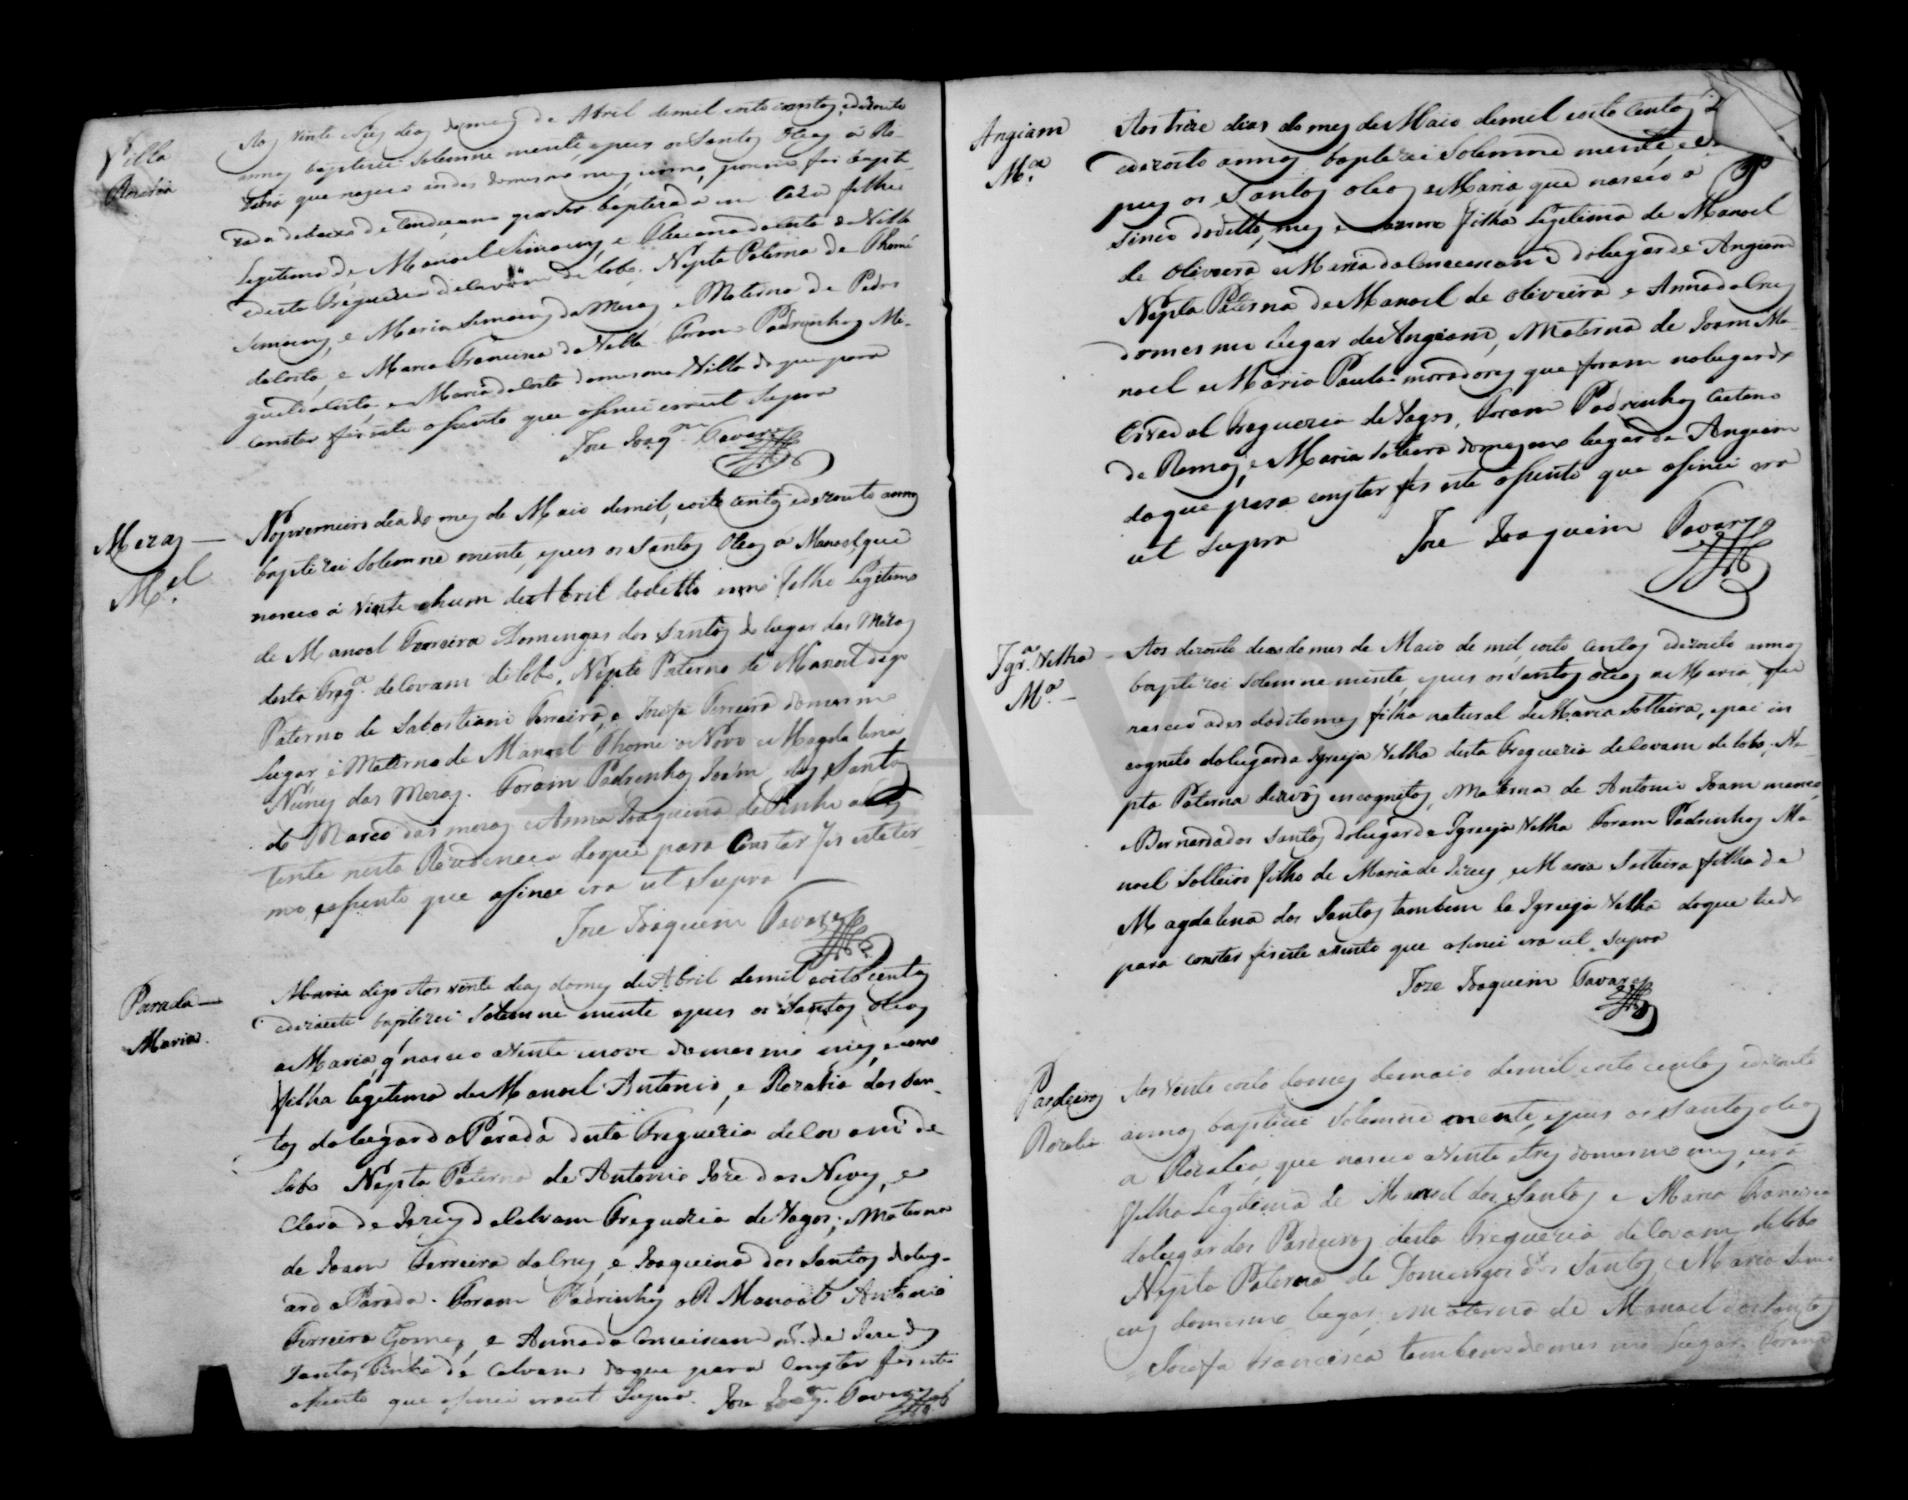 Villa
Rozalia
Aos vinte e seis dias do mes de Abril de mil oito centos, e dezouto
annos baptizei solemne mente, e puis os Santos Oleos a Ro-
zalia que nasceo em dito do mesmo mes, e anno, porem foi bapti-
zada debaixo de condiçam por ser baptizada em caza filha
Legitima de Manoel Simoens, e da Costa da Villa
desta Freguezia de Covam de Lobo. Nepta Paterna de Thomé
Simoens, e Maria Simoens da Mezas, e Materna de Pedro
da Costa, e Maria Francisca da Villa. Foram Padrinhos Mi-
guel da Costa, e Maria da Costa da mesma Villa do que para
constar fis este asento que asinei era ut Supra
Joze Joaqm Tavares
Mezas
Mel
No premeiro dia do mes de Maio de mil, oito centos e dezouto annos
baptizei Solemne mente, e puis os Santos Oleos a Manoel que
nasceo a vinte e hum de Abril do ditto anno filho Legitimo
de Manoel Ferreira Domingas dos Santos do lugar das Mezas
desta Frega de Covam de Lobo, Nepto Paterno de Manoel digo
Paterno de Sabastiam Ferreira, e Jozefa Ferreira do mesmo
Lugar, e Materno de Manoel Thome o Novo e Magdalena
Nunes das Mezas. Foram Padrinhos Joam dos Santos
do Marco das mezas e Anna Joaquina do Pinheiro
tente nesta Rezidencia do que para Constar fis este ter-
mo, e asento que asinei era ut Supra
Joze Joaquim Tavares
Parada
Maria
Maria digo Aos vinte dias do mes de Abril de mil oito centos
e dezouto baptizei Solemne mente e puis os Santos Oleos
a Maria, q nasceo a vinte nove do mesmo mes, e anno
filha legitima de Manoel Antonio, e Rozalia dos San-
tos do lugar da Parada desta Freguezia de Covam de
Lobo Nepta Paterna de Antonio Joze das Neves, e
Clara de Jezus de Calvam Freguezia de Vagos; Materna
de Joam Ferreira da Crus, e Joaquina dos Santos do lug-
ar da Parada. Foram Padrinhos o R Manoel Antonio
Ferreira Gomes, e Anna da Conceicam m.er de Joze dos
Santos Pinho de Calvam do que para Constar fis este
asento que asinei era ut Supra. Joze Joaqm Tavares
Angiam
Ma
Aos treze dias do mes de Maio de mil oito centos
e dezouto annos baptizei Solemne mente, e
puis os Santos oleos a Maria que nasceo a
sinco do ditto mes e anno filha Legitima de Manoel
de Oliveira e Maria da Conceicam do lugar de Angiam
Nepta Paterna de Manoel de Oliveira e Anna da Crus
do mesmo lugar de Angiam, Materna de Joam Ma-
noel e Maria Paula moradores que foram no lugar do
Covam Freguezia de Vagos, Foram Padrinhos Caetano
de Ramos, e Maria solteira do mesmo lugar de Angiam
do que para constar fis este asento que asinei era
ut Supra Joze Joaquim Tavares
Igra Velha
Ma
Aos dezouto dias do mes de Maio de mil, oito centos e dezouto annos
baptizei Solemne mente, e puis os Santos oleos a Maria, que
nasceo a des do dito mes filha natural de Maria Solteira, e pai in
cognito do lugar da Igreija Velha desta Freguezia de Covam de Lobo. Ne-
pta Paterna de avós incognitos, Materna de Antonio Joam manco
e Bernarda dos Santos do lugar da Igreija Velha Foram Padrinhos Ma
noel Solteiro filho de Maria de Jezus, e Maria Solteira filha de
Magdalena dos Santos tambem da Igreija Velha do que tudo
para constar fis este asento que asinei era ut Supra
Joze Joaquim Tavares
Pardeiros
Rozalia
Aos vinte oito do mes de maio de mil oito centos e dezouto
annos baptizei Solemne mente, e puis os Santos oleos
a Rozalia, que nasceo a vinte e tres do mesmo mes, e era
filha Legitima de Manoel dos Santos e Maria Francisca
do lugar dos Pardeiros desta Freguezia de Covam de Lobo
Nepta Paterna de Domingos dos Santos, e Maria Simo
ens do mesmo lugar, Materna de Manoel dos Santos
e Jozefa Francisca tambem do mesmo lugar. Foram